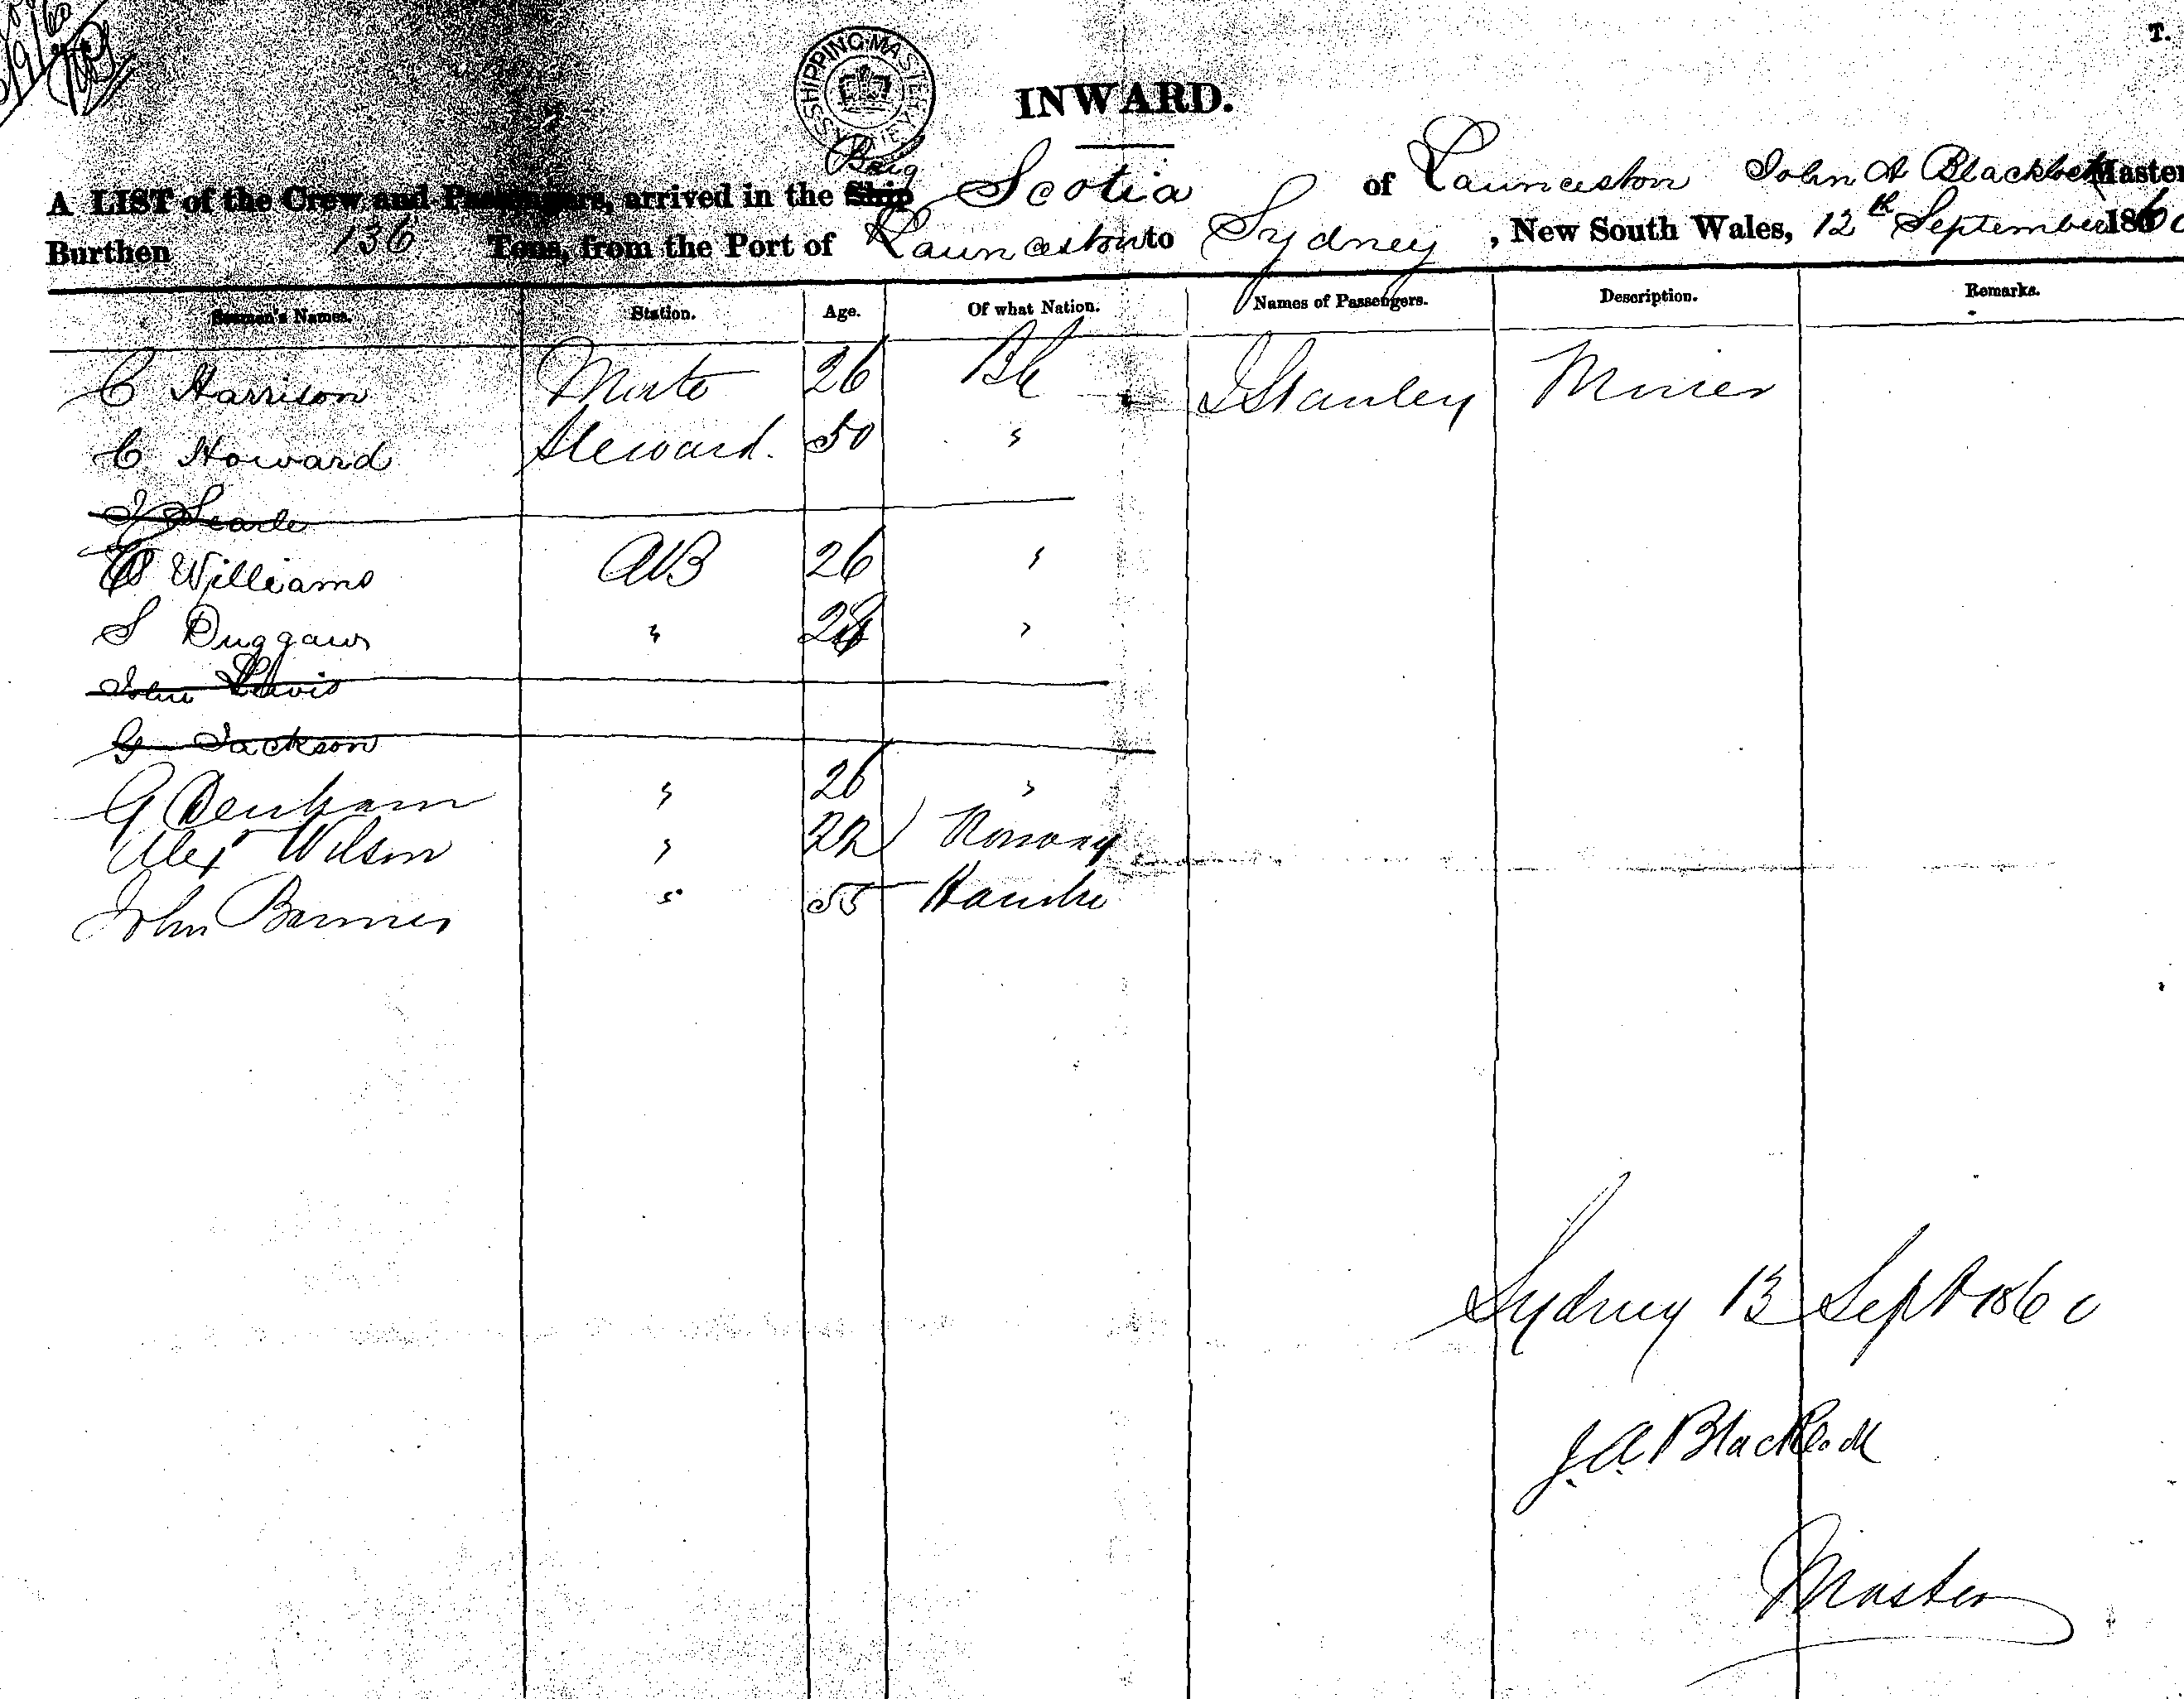 SHIPPING MASTER'S SYDNEY
T.
INWARD.
Brig
A LIST of the Crew and Passengers, arrived in the Ship Scotia of Launceston John A Blacklock Master
Burthen 136 Tons, from the Port of Launceston to Sydney, New South Wales, 12th September 1860
Seaman's Names. Station. Age. Of what Nation. Names of Passengers. Description. Remarks.
C Harrison Mate 26 J Stanley Miner
C Howard Steward. 50 "
J Searle
Williams AB 26 "
S Duggan " "
John Lewis
G Jackson
G Denham " 26 "
Alex Wilson " 22 Norway
John Barnes " 55
Sydney 13 Sept 1860
J. A. Blacklock
Master